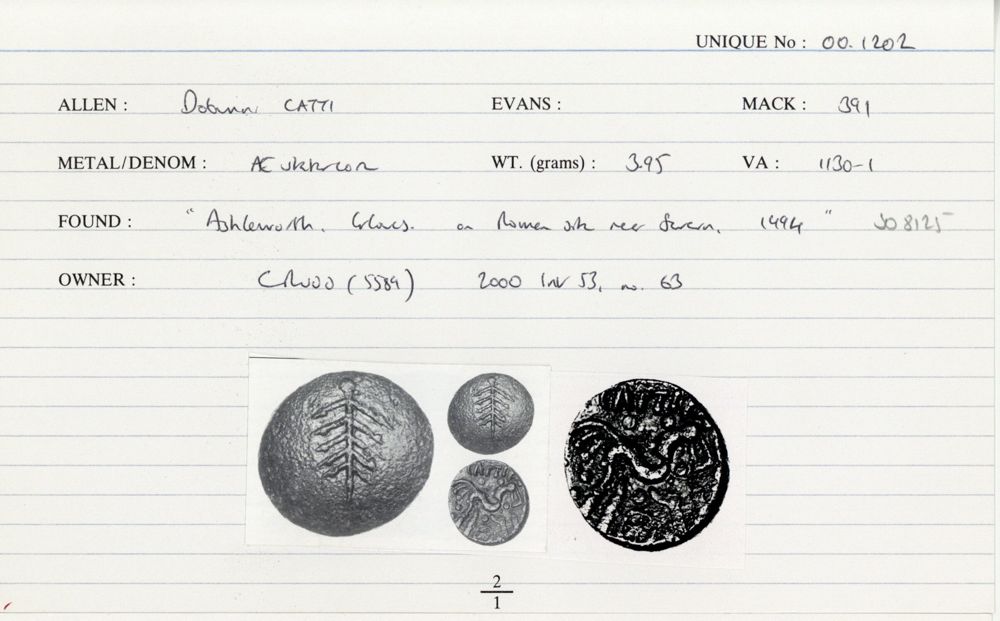 UNIQUE No : 00.1202
ALLEN : Dobunni CATTI EVANS : MACK : 391
METAL/DENOM : Æ stater core WT. (grams) : 3.95 VA : 1130-1
FOUND : "Ashleworth, Gloucs. on Roman site near Severn, 1994" SO 8125
OWNER : CRUDD (5589) 2000 Inv 53, no. 63
CATTI
2
1